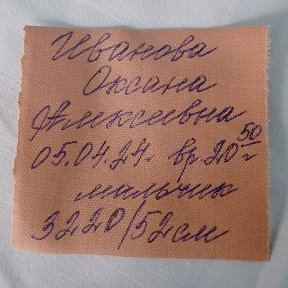 Иванова
Оксана
Алексеевна
05.04.24г. вр. 20 50 г
мальчик
3220/52см